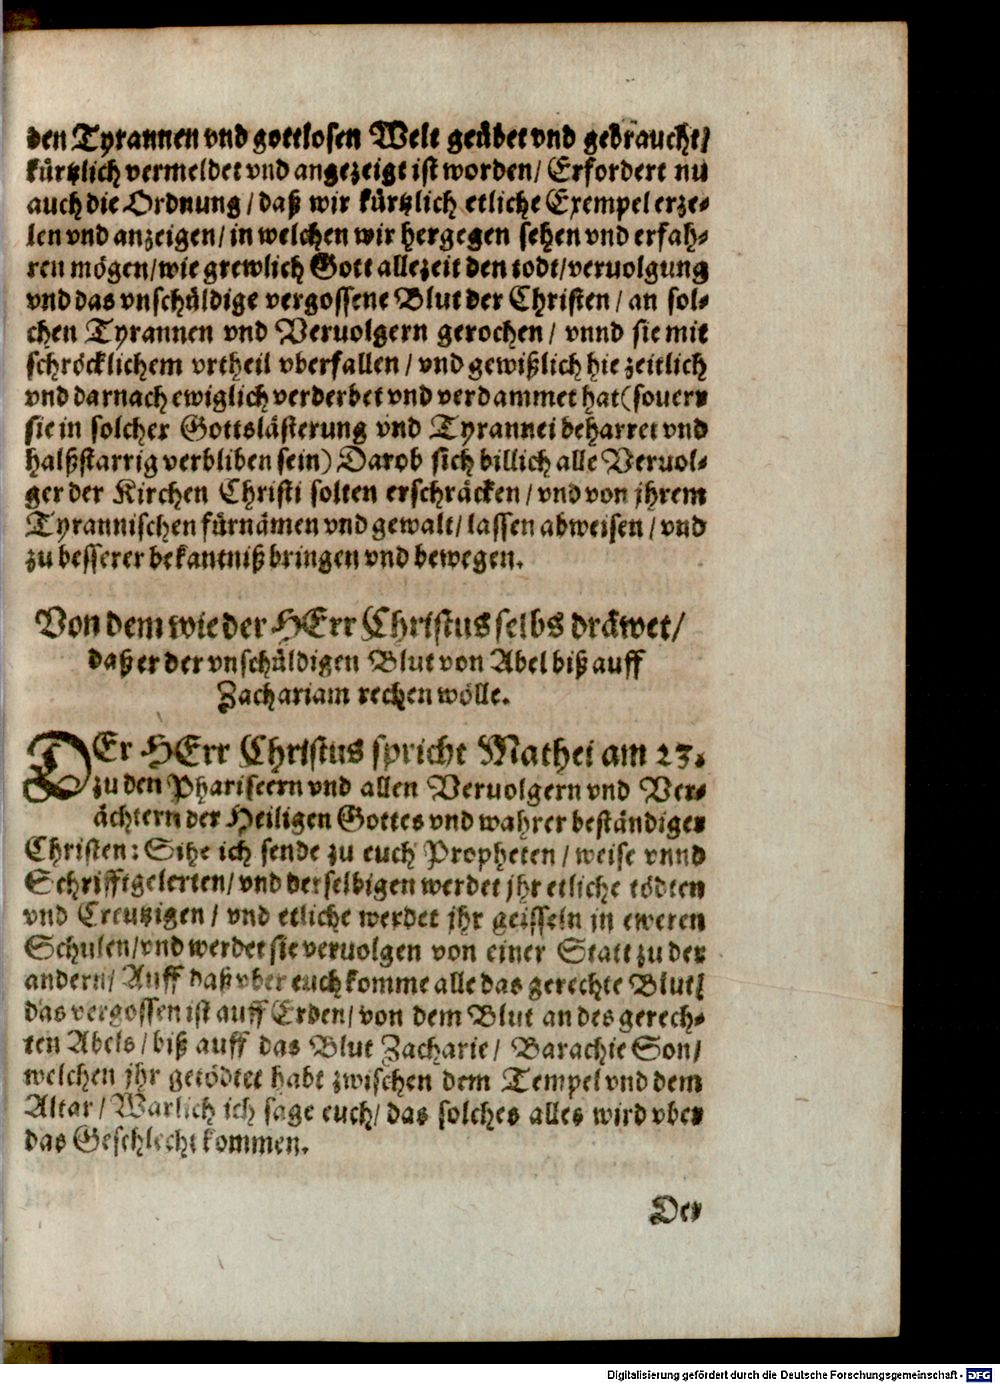 den Tyrannen vnd gottlosen Welt geübet vnd gebraucht/
kürtzlich vermeldet vnd angezeigt ist worden/ Erfordert nu
auch die Ordnung/ daß wir kürtzlich etliche Exempel erze-
len vnd anzeigen/ in welchen wir hergegen sehen vnd erfah-
ren mögen/ wie grewlich Gott allezeit den todt/ veruolgung
vnd das vnschüldige vergossene Blut der Christen/ an sol-
chen Tyrannen vnd Veruolgern gerochen/ vnnd sie mit
schröcklichem vrtheil vberfallen/ vnd gewißlich hie zeitlich
vnd darnach ewiglich verderbet vnd verdammet hat (souern
sie in solcher Gottslästerung vnd Tyrannei beharret vnd
halßstarrig verbliben sein) Darob sich billich alle Veruol-
ger der Kirchen Christi solten erschräcken/ vnd von jhrem
Tyrannischen fürnämen vnd gewalt/ lassen abweisen/ vnd
zu besserer bekantniß bringen vnd bewegen.
Von dem wie der HErr Christus selbs dräwet/
daß er der vnschüldigen Blut von Abel biß auff
Zachariam rechen wölle.
DEr HErr Christus spricht Mathei am 23.
zu den Phariseern vnd allen Veruolgern vnd Ver-
ächtern der Heiligen Gottes vnd wahrer beständiger
Christen: Sihe ich sende zu euch Propheten/ weise vnnd
Schrifftgelerten/ vnd derselbigen werdet jhr etliche tödten
vnd Creutzigen/ vnd etliche werdet jhr geisseln in eweren
Schulen/ vnd werdet sie veruolgen von einer Statt zu der
andern/ Auff daß vber euch komme alle das gerechte Blut/
das vergossen ist auff Erden/ von dem Blut an des gerech-
ten Abels/ biß auff das Blut Zacharie/ Barachie Son/
welchen jhr getödtet habt zwischen dem Tempel vnd dem
Altar/ Warlich ich sage euch/ das solches alles wird vber
das Geschlecht kommen.
Der
Digitalisierung gefördert durch die Deutsche Forschungsgemeinschaft - DFG